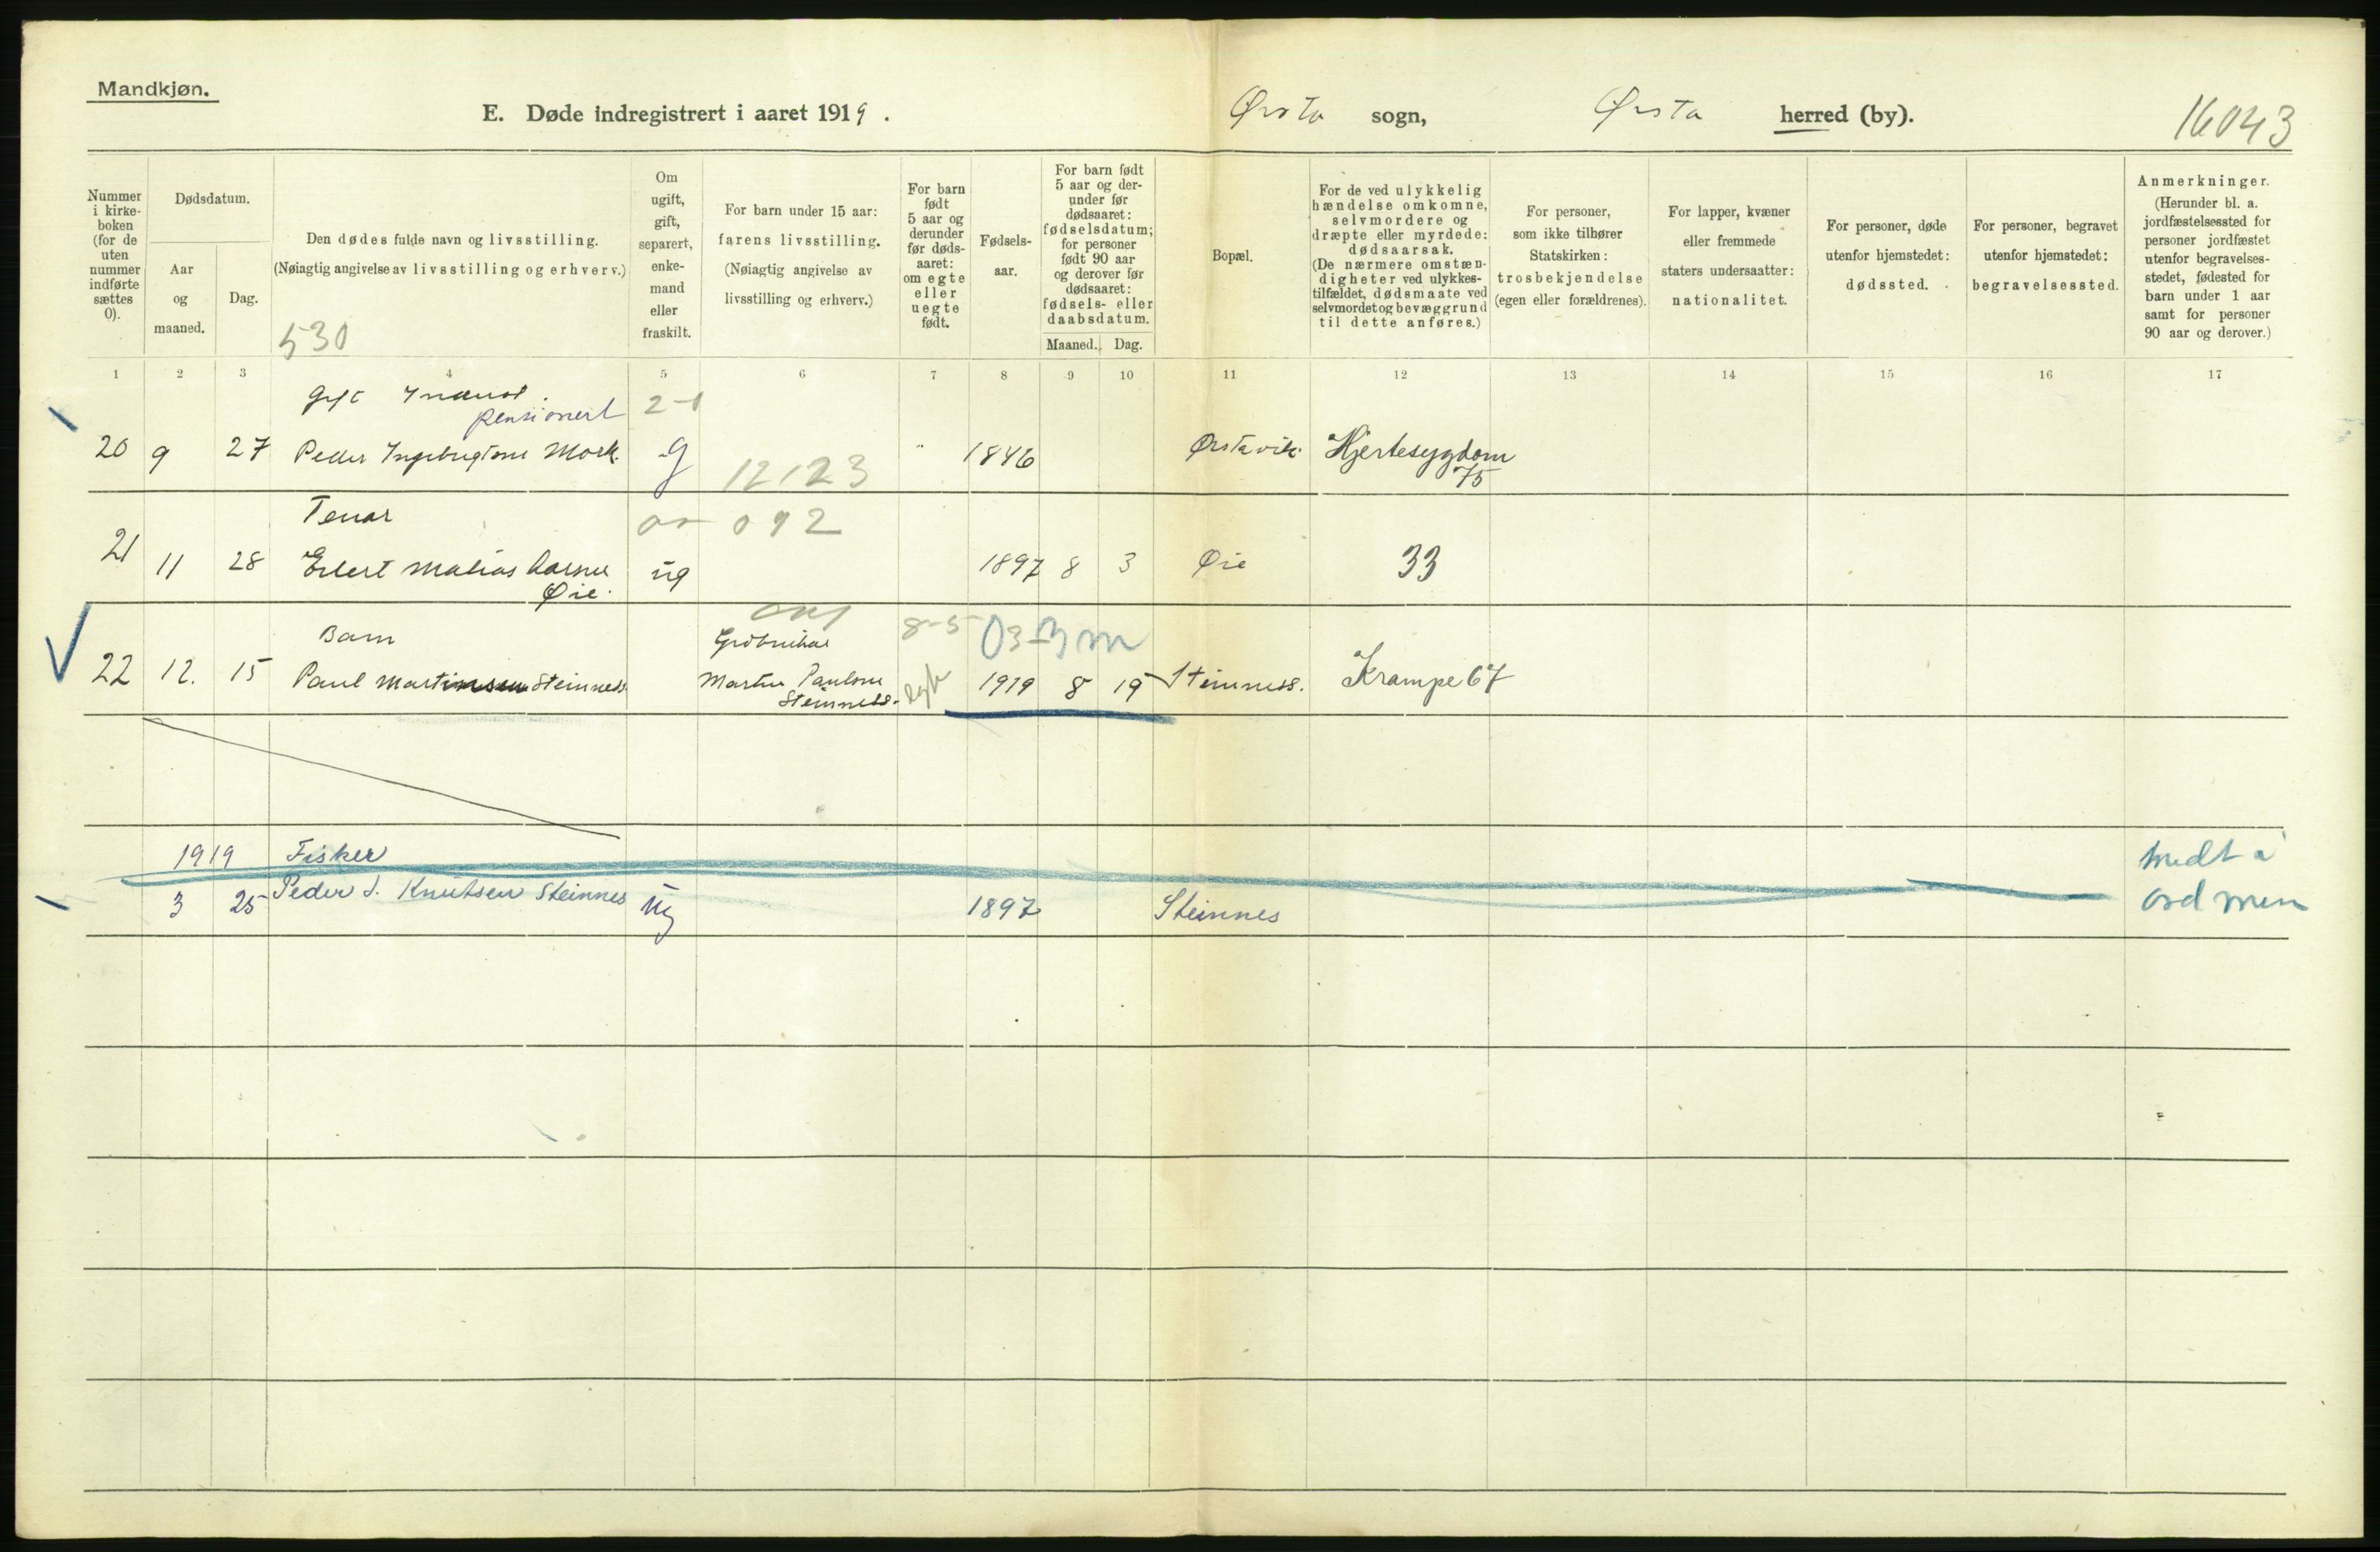 Mandkjøn.
E. Døde indregistrert i aaret 1919.
Ørsta sogn, Ørsta herred (by).
16043
Nummer i kirkeboken (for de uten nummer indførte sættes 0).
Dødsdatum.
Aar og maaned.
Dag.
Den dødes fulde navn og livsstilling.
(Nøiagtig angivelse av livsstilling og erhverv.)
530
Om ugift, gift, separert, enkemand eller fraskilt.
For barn under 15 aar: farens livsstilling. (Nøiagtig angivelse av livsstilling og erhverv.)
For barn født 5 aar og derunder før dødsaaret: om egte eller uegte født.
Fødselsaar.
For barn født 5 aar og derunder før dødsaaret: fødselsdatum; for personer født 90 aar og derover før dødsaaret: fødsels- eller daabsdatum.
Maaned. Dag.
Bopæl.
For de ved ulykkelig hændelse omkomne, selvmordere og dræpte eller myrdede: dødsaarsak. (De nærmere omstændigheter ved ulykkestilfældet, dødsmaate ved selvmordet og bevæggrund til dette anføres.)
For personer, som ikke tilhører Statskirken: trosbekjendelse (egen eller forældrenes).
For lapper, kvæner eller fremmede staters undersaatter: nationalitet.
For personer, døde utenfor hjemstedet: dødssted.
For personer, begravet utenfor hjemstedet: begravelsessted.
Anmerkninger. (Herunder bl. a. jordfæstelsessted for personer jordfæstet utenfor begravelsesstedet, fødested for barn under 1 aar samt for personer 90 aar og derover.)
1 2 3 4 5 6 7 8 9 10 11 12 13 14 15 16 17
pensionert 2-1
20 9 27 Peder Mork. g 12123 " 1846 Ørstavik. Hjertesygdom
75
092
21 11 28 Matias ug 1897 8 3 Øie 33
Øie.
Barn 8-5 03-3 m
22 12. 15 Paul Martinsen Steinness Martin Paulsen egte 1919 8 19 Steinness. Krampe 67
Steinness.
1919 Fisker
3 25 Peder J. Knutsen Steinnes ug 1897 Steinnes
medt a
ord men